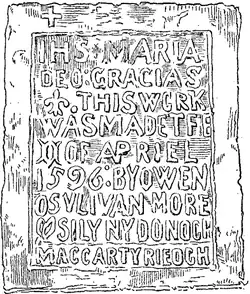 IHS · MARIA
DEO · GRACIAS
THIS WORK
WAS MADE THE
II OF APRIEL
1596 · BY OWEN
OSVLIVAN MORE
SILY NY DONOGH
MACCARTY RIEOGH